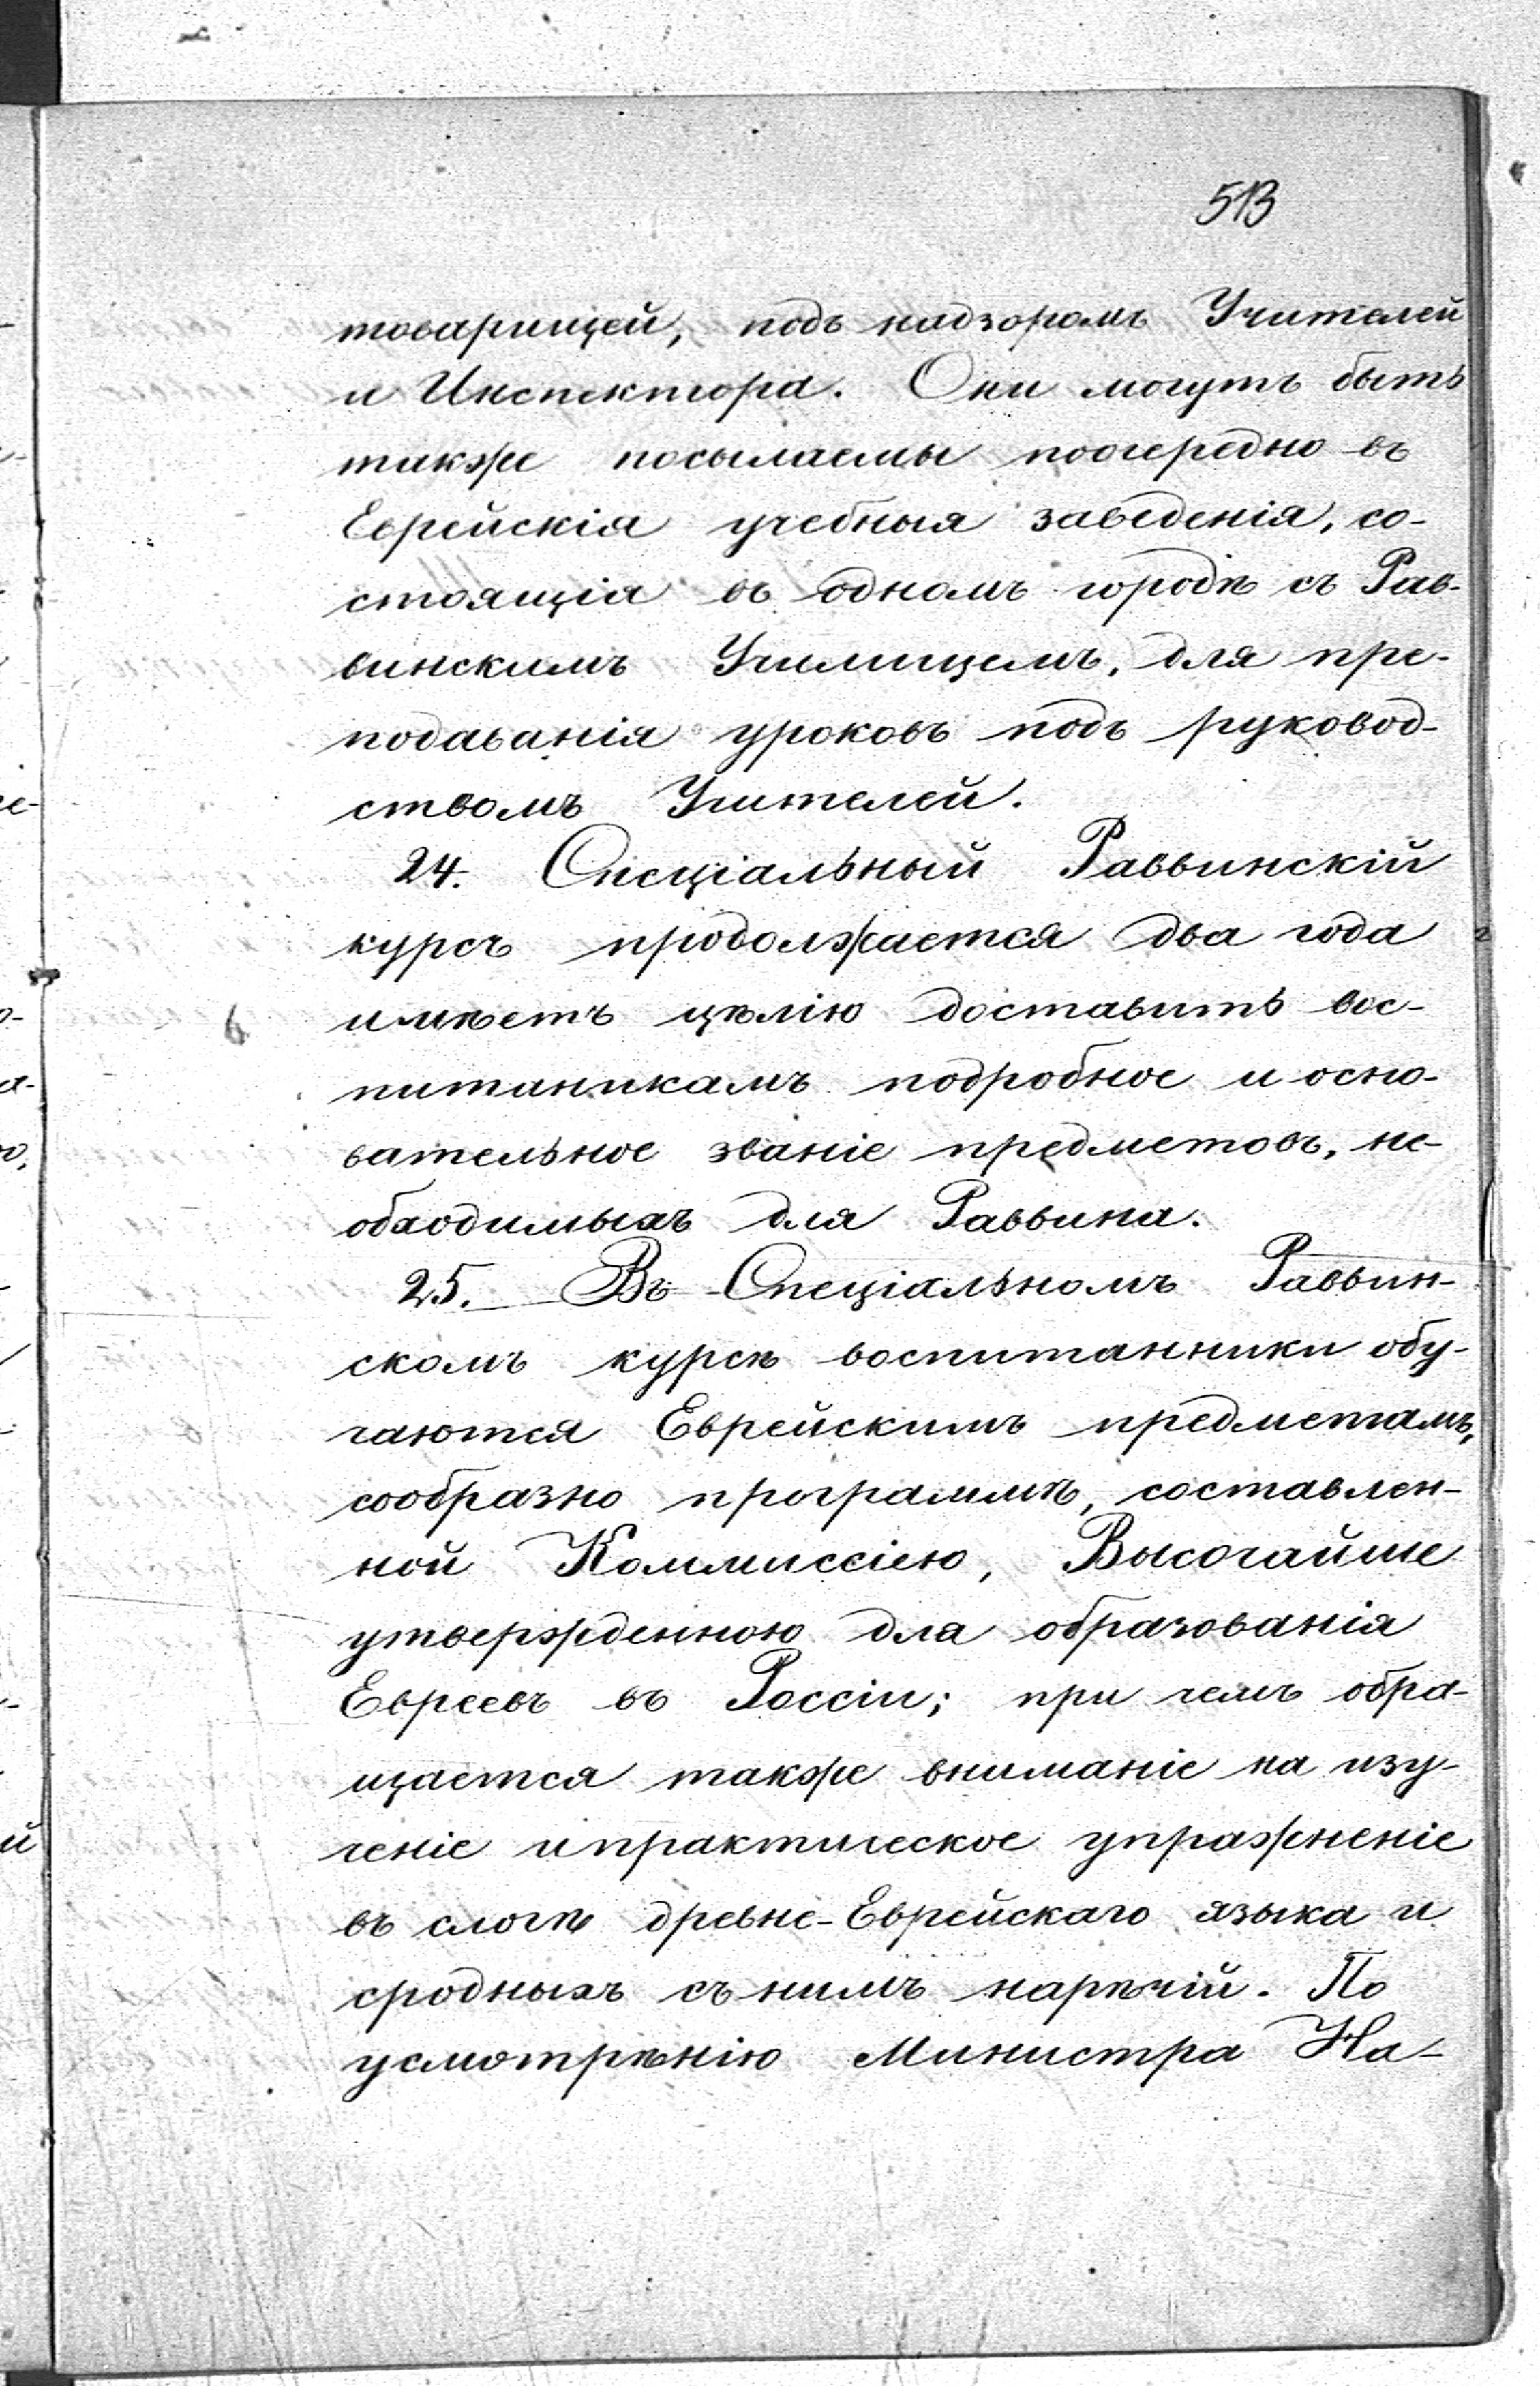 513
товарищей, подъ надзоромъ Учителей
и Инспектора. Они могутъ быть
также посылаемы поочередно въ
Еврейскія учебныя заведенія, со-
стоящія въ одномъ городѣ съ Рав-
винскимъ Училищемъ, для пре-
подаванія уроковъ подъ руковод-
ствомъ Учителей.
24. Спеціальный Раввинскій
курсъ продолжается два года
имѣетъ цѣлію доставить вос-
питаникамъ подробное и осно-
вательное званіе предметовъ, не-
обходимыхъ для Раввина.
25. Въ Спеціальномъ Раввин-
скомъ курсѣ воспитанники обу-
чаются Еврейскимъ предметамъ,
сообразно программѣ, составлен-
ной Коммиссіею, Высочайше
утвержденною для образованія
Евреевъ въ Россіи; при чемъ обра-
щается также вниманіе на изу-
ченіе и практическое упражненіе
въ слогѣ древне-Еврейскаго языка и
сродныхъ съ нимъ нарѣчій. По
усмотрѣнію Министра На-